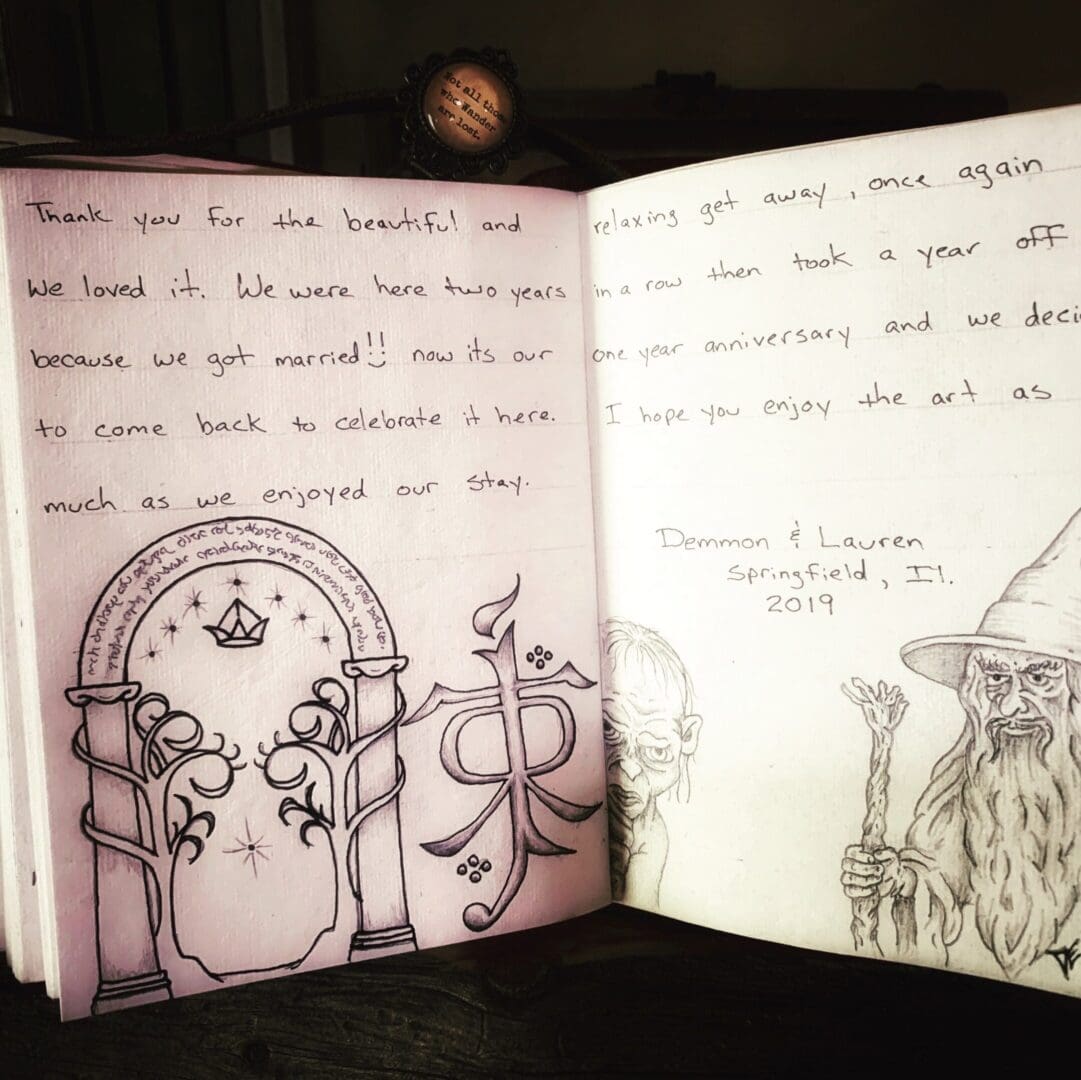 Not all those
who Wander
are lost.
Thank you for the beautiful and relaxing get away, once again
We loved it. We were here two years in a row then took a year off
because we got married!! now its our one year anniversary and we deci
to come back to celebrate it here. I hope you enjoy the art as
much as we enjoyed our stay.
Demmon & Lauren
Springfield, Il.
2019